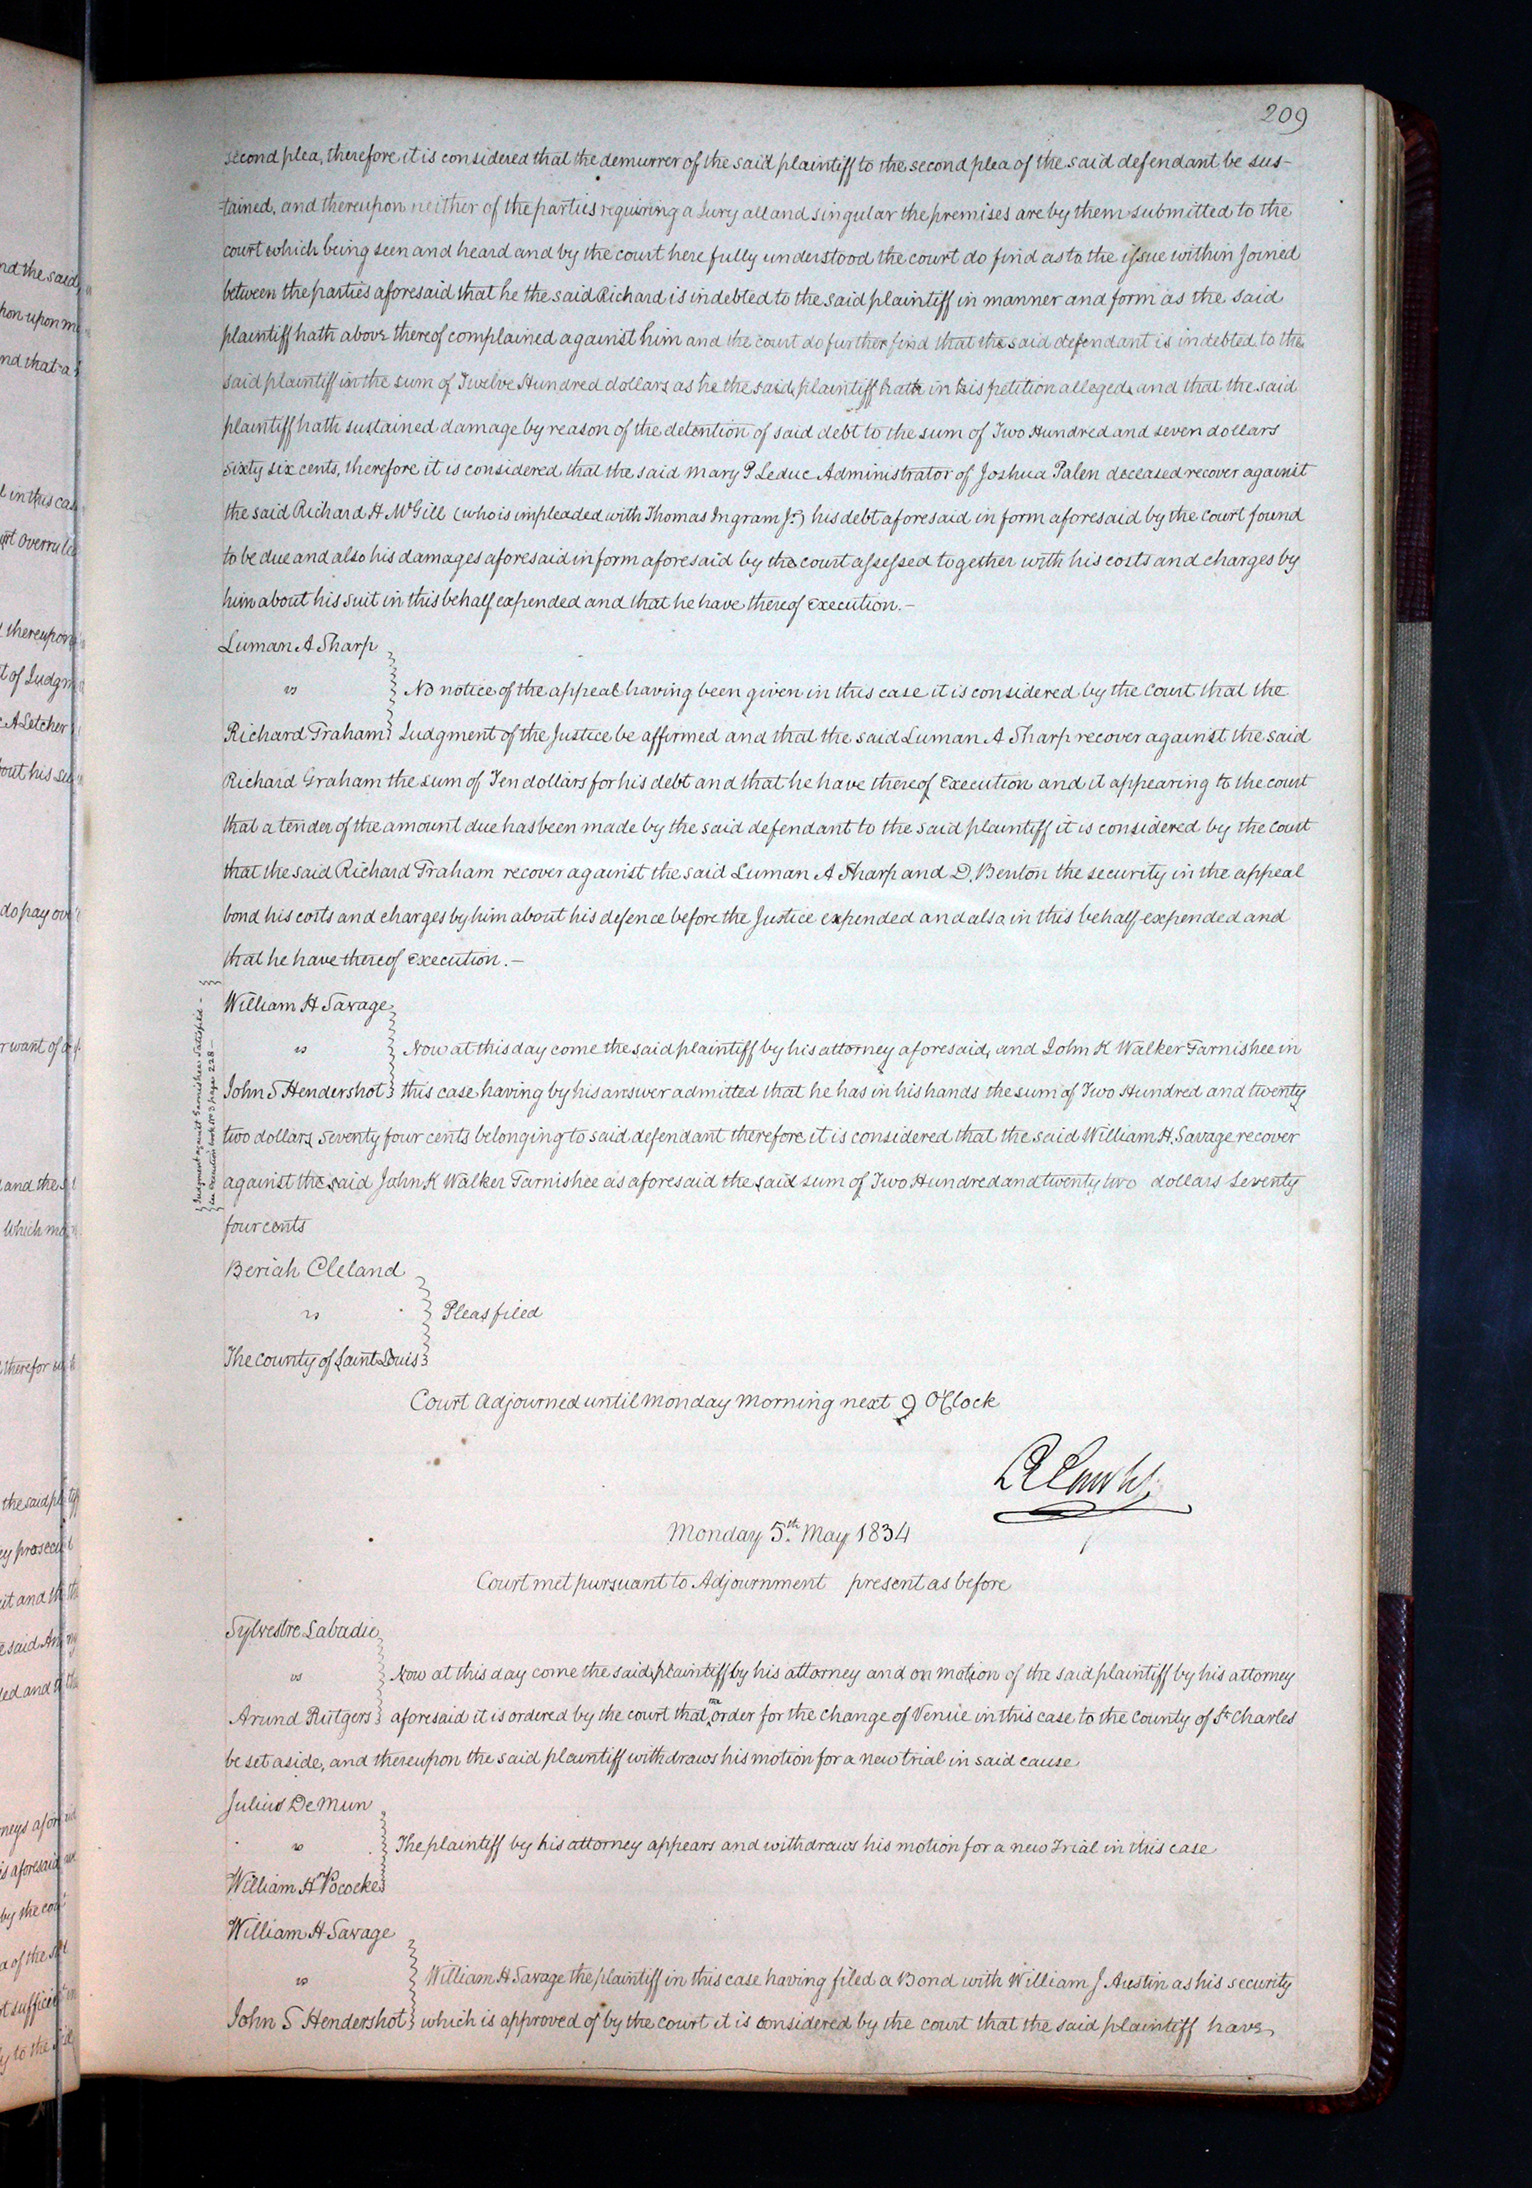 209
second plea, therefore it is considered that the demurrer of the said plaintiff to the second plea of the said defendant be sus-
tained, and thereupon neither of the parties requiring a Jury all and singular the premises are by them submitted to the
court which being seen and heard and by the court here fully understood the court do find as to the issue within Joined
between the parties aforesaid that he the said Richard is indebted to the said plaintiff in manner and form as the said
plaintiff hath above thereof complained against him and the court do further find that the said defendant is indebted to the
said plaintiff in the sum of Twelve Hundred dollars as he the said plaintiff hath in his petition alleged and that the said
plaintiff hath sustained damage by reason of the detention of said debt to the sum of Two Hundred and seven dollars
sixty six cents, therefore it is considered that the said Mary P Leduc Administrator of Joshua Palen deceased recover against
the said Richard H McGill (who is impleaded with Thomas Ingram Jr) his debt aforesaid in form aforesaid by the court found
to be due and also his damages aforesaid in form aforesaid by the court assessed together with his costs and charges by
him about his suit in this behalf expended and that he have thereof Execution.-
Luman A Sharp
vs No notice of the appeal having been given in this case it is considered by the court that the
Richard Graham Judgment of the Justice be affirmed and that the said Luman A Sharp recover against the said
Richard Graham the sum of Ten dollars for his debt and that he have thereof Execution and it appearing to the court
that a tender of the amount due has been made by the said defendant to the said plaintiff it is considered by the court
that the said Richard Graham recover against the said Luman A Sharp and D. Benton the security in the appeal
bond his costs and charges by him about his defence before the Justice expended and also in this behalf expended and
that he have thereof Execution.-
William H Savage
vs Now at this day come the said plaintiff by his attorney aforesaid, and John K Walker Garnishee in
John S Hendershot this case having by his answer admitted that he has in his hands the sum of Two Hundred and twenty
two dollars seventy four cents belonging to said defendant therefore it is considered that the said William H. Savage recover
against the said John K Walker Garnishee as aforesaid the said sum of Two Hundred and twenty two dollars seventy
four cents
Judgment against Garnishee Satisfied -
See Execution book No 3 page 228-
Beriah Cleland
vs Pleas filed
The County of Saint Louis
Court Adjourned until Monday Morning next 9 OClock
Monday 5th May 1834
Court met pursuant to Adjournment present as before
Sylvestre Labadie
vs Now at this day come the said plaintiff by his attorney and on motion of the said plaintiff by his attorney
Arund Rutgers aforesaid it is ordered by the court that the order for the change of Venue in this case to the County of St Charles
be set aside, and thereupon the said plaintiff withdraws his motion for a new trial in said cause
Julius DeMun
vs The plaintiff by his attorney appears and withdraws his motion for a new Trial in this case
William H Pococke
William H Savage
vs William H Savage the plaintiff in this case having filed a Bond with William J. Austin as his security
John S Hendershot which is approved of by the court it is considered by the court that the said plaintiff have